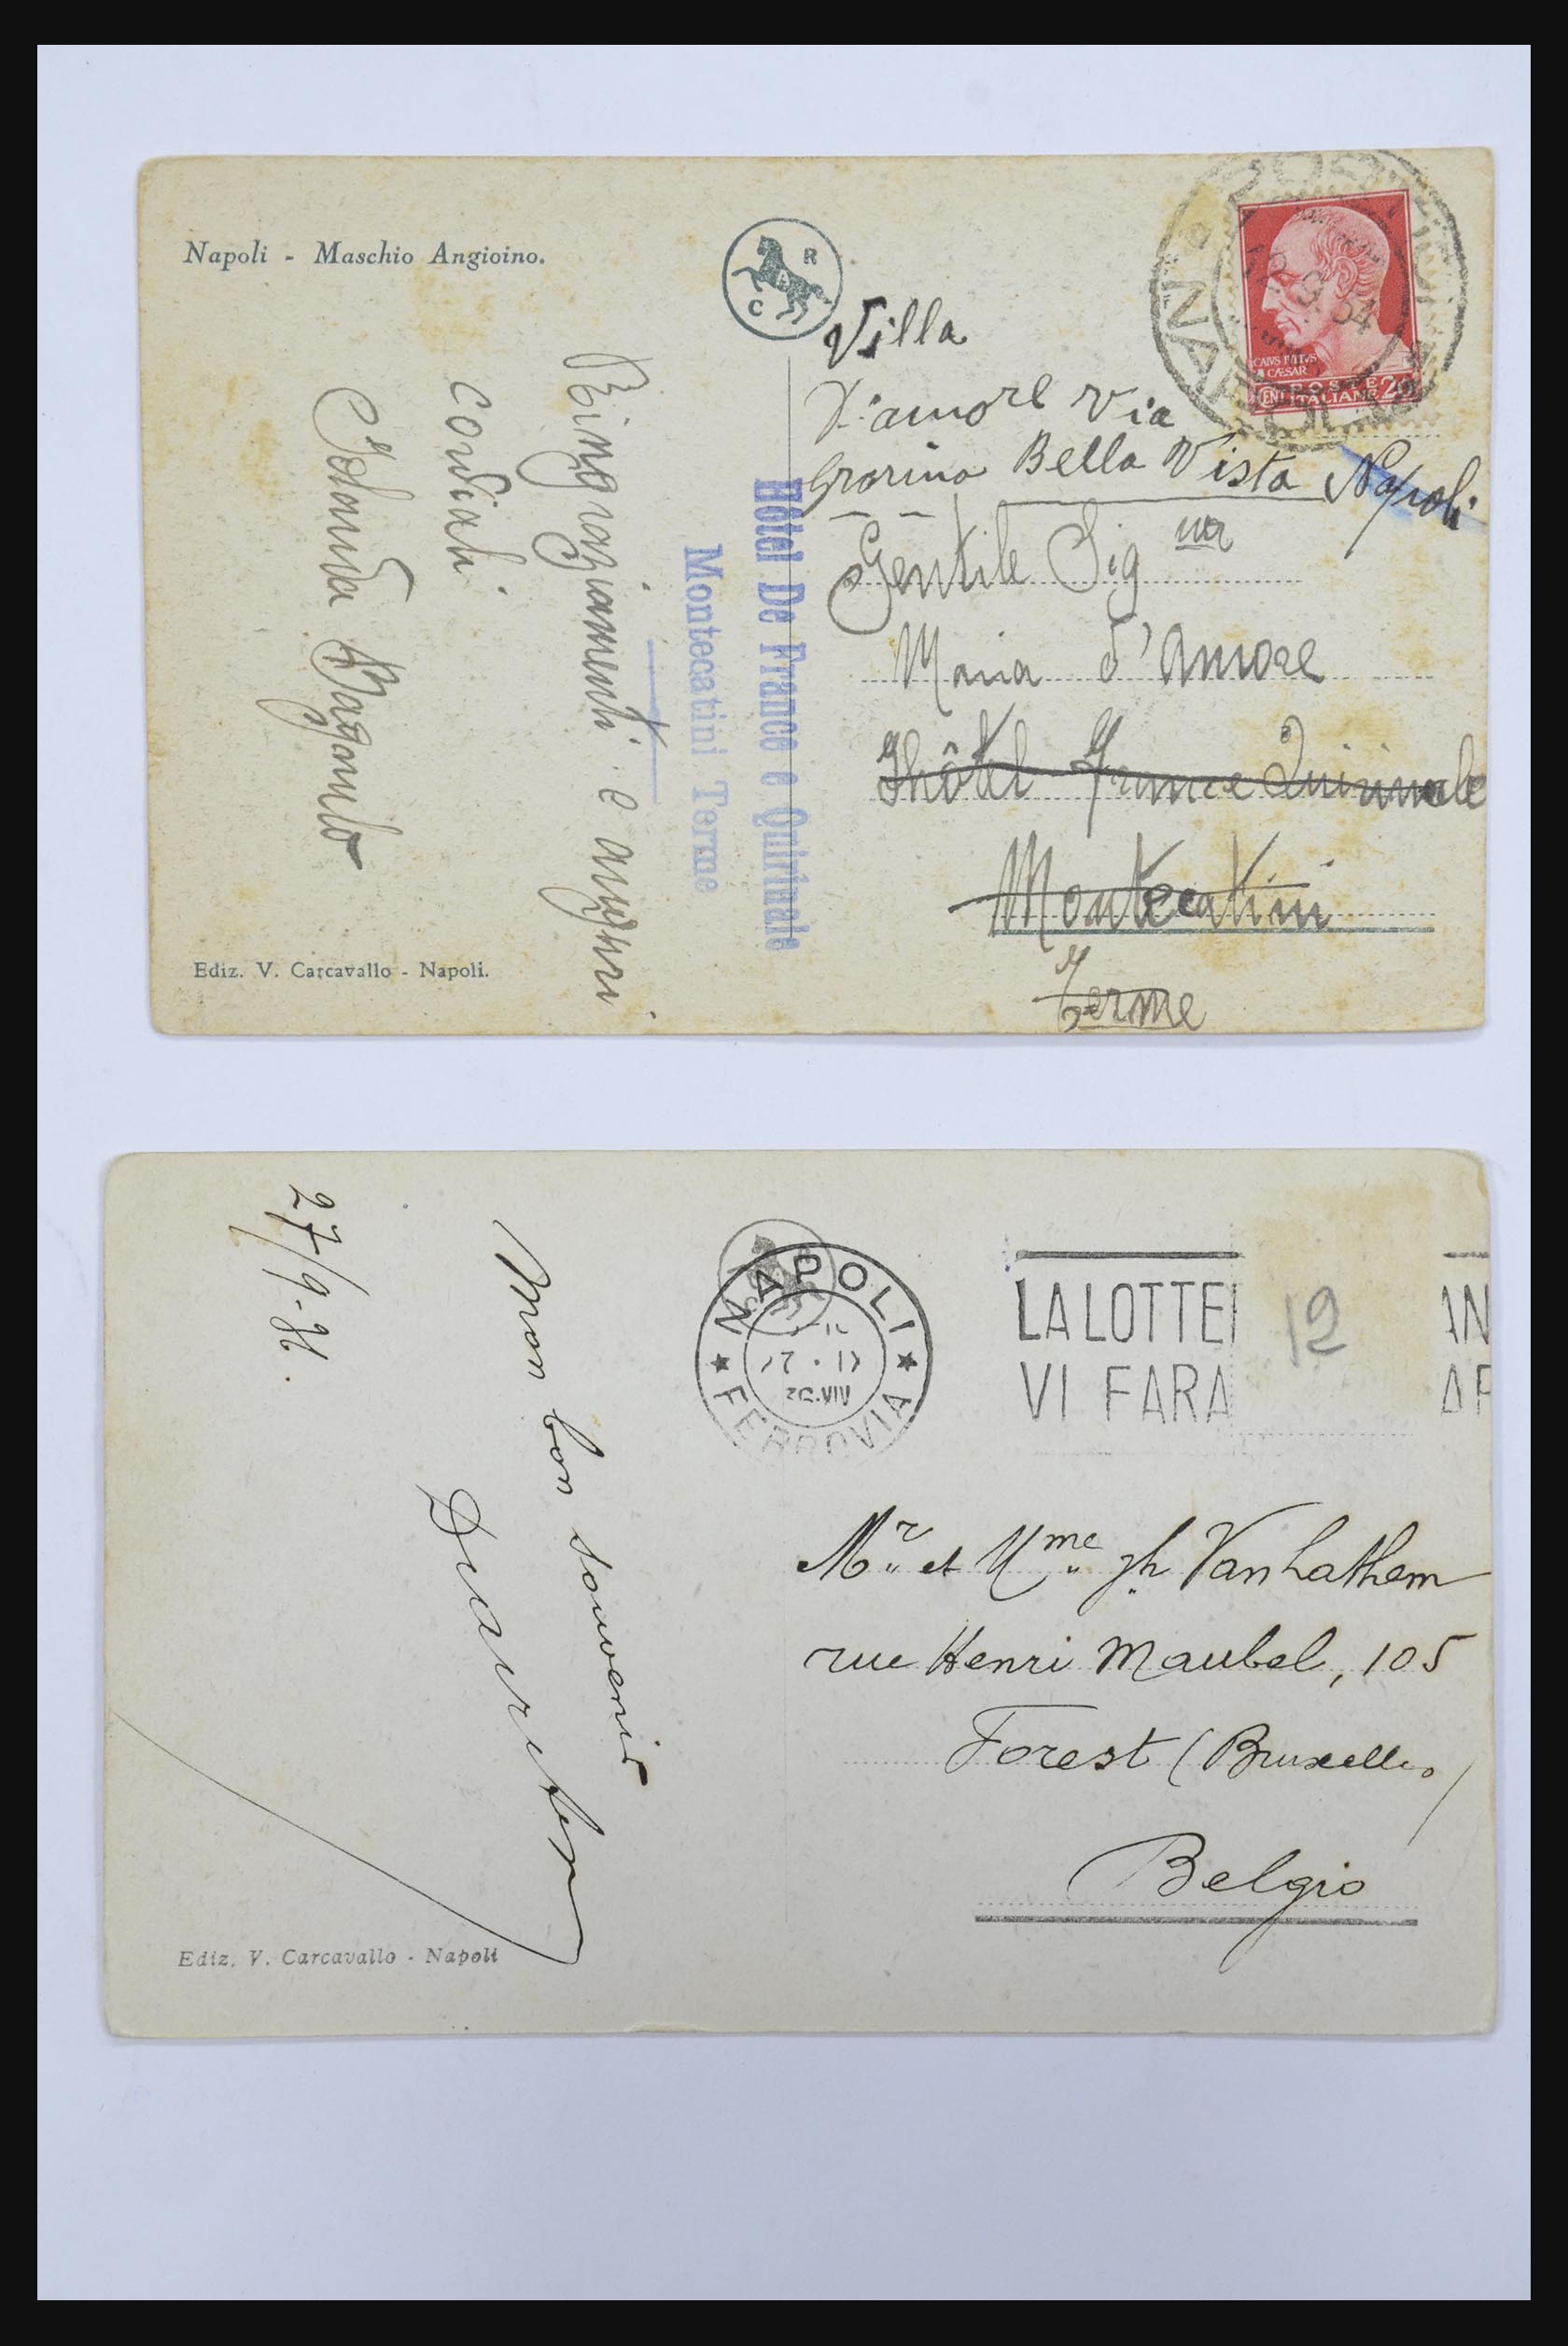 Napoli - Maschio Angioino.
R
C
Villa
D'amore Via
Bella Vista Napoli
Gentile Sig na
Maria d'Amore
Hôtel France Quirinale
Montecatini
Terme
Hôtel De France e Quirinale
Montecatini Terme
Ringraziamenti e auguri
cordiali
Jolanda
Ediz. V. Carcavallo - Napoli.
CAIVS IVLIVS
CÆSAR
POSTE
CENT. ITALIANE 20
NAPOLI
34
27/9-36.
Mon bon souvenir
NAPOLI
FERROVIA
LA LOTTE AN
VI FARA
12
Mr et Mme Jh Vanhathem
rue Henri Maubel, 105
Forest (Bruxelles)
Belgio
Ediz. V. Carcavallo - Napoli